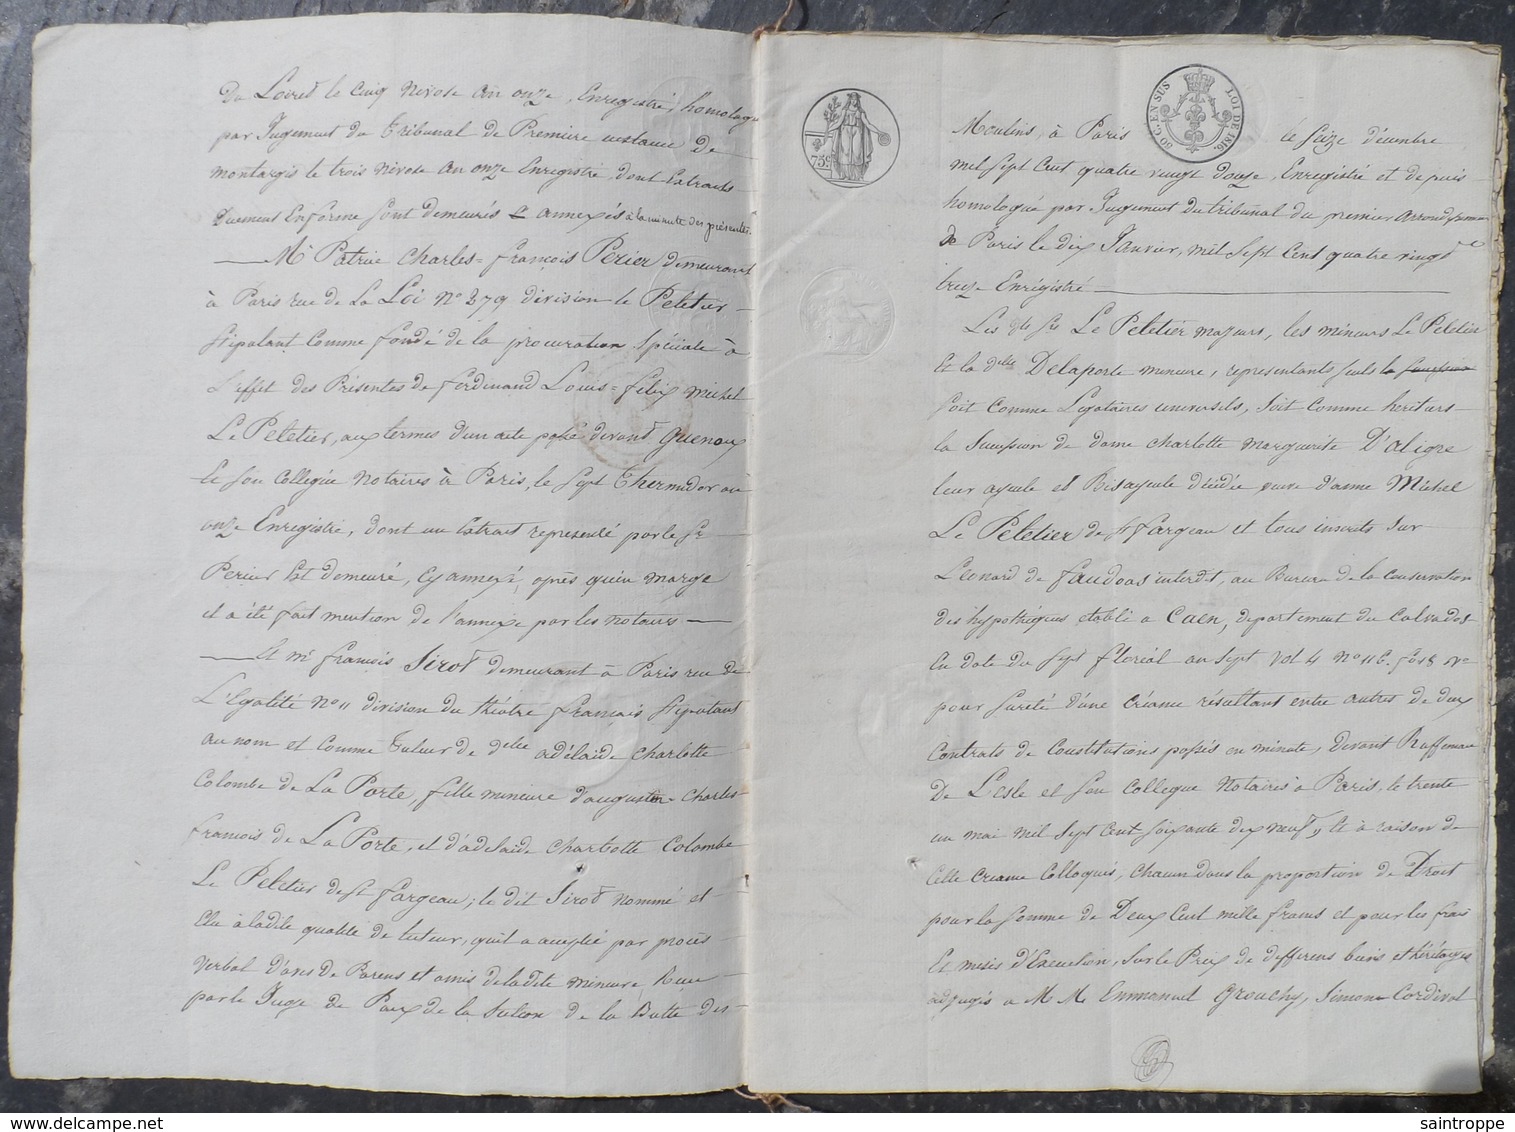 Du Loiret le cinq Nivose an onze, Enregistré, homologué
par Jugement du Tribunal de Premiere instance de
montargis le trois nivose an onze Enregistré, dont Extraits
Duement En forme sont demeurés annexés à la minute des présentes.
M. Patrice Charles=françois Périer demeurant
à Paris rue de La Loi N° 279 division le Peletier
stipulant Comme fondé de la procuration spéciale à
L'effet des Présentes de ferdinand Louis=felix michel
Le Peletier, aux termes d'un acte passé devant Guenoux
et son Collégue Notaires à Paris, le sept Thermidor an
onze Enregistré, dont un Extrait représenté par le Sr
Perier Est demeuré, Cy annexé, après qu'en marge
il a été fait mention de l'annexe par les notaires
Et M. françois Sirot demeurant à Paris rue de
L'Egalité N° 11 division du théâtre français stipulant
au nom et comme Tuteur de delle adélaide Charlotte
Colombe de La Porte, fille mineure d'augustin Charles
françois de La Porte, et d'adelaide Charlotte Colombe
Le Peletier de St fargeau; le dit Sirot nommé et
Elu à ladite qualité de tuteur, qu'il a acceptée par procès
verbal d'avis de Parens et amis de ladite mineure, Reçu
par le Juge de Paix de la section de la Butte des
75c.
50 C. EN SUS
LOI DE 1816.
Moulins, à Paris le seize décembre
mil sept Cent quatre vingt douze, Enregistré et depuis
homologué par Jugement du tribunal du premier arrondissement
de Paris le dix Janvier, mil sept Cent quatre vingt
treize Enrégistré
Les dts srs Le Peletier majeurs, les mineurs Le Peletier
Et la delle Delaporte mineure, représentants seuls la succession
soit comme Légataires universels, soit comme héritiers
la Succession de dame Charlotte Marguerite D'aligre
leur ayeule et Bisayeule décédée veuve d'asme Michel
Le Peletier de St fargeau et tous inscrits sur
Léonard de faudoas interdit, au Bureau de la Conservation
des hypothéques établi à Caen, département du Calvados
En date du sept floréal an sept Vol 4 N° 116.
pour sureté d'une créance résultant entre autres de deux
Contrats de Constitutions passés en minute, devant Raffeneau
De L'isle et son Collegue Notaires à Paris, le trente
un mai mil sept Cent soixante dix neuf, Et à raison de
Cette Créance Colloqués, Chacun dans la proportion de Droit
pour la somme de Deux Cent mille francs et pour les frais
Et mises d'Execution, sur le Prix de differens biens et héritages
adjugés à M M Emmanuel Grouchy, Simon Cordival
saintroppe